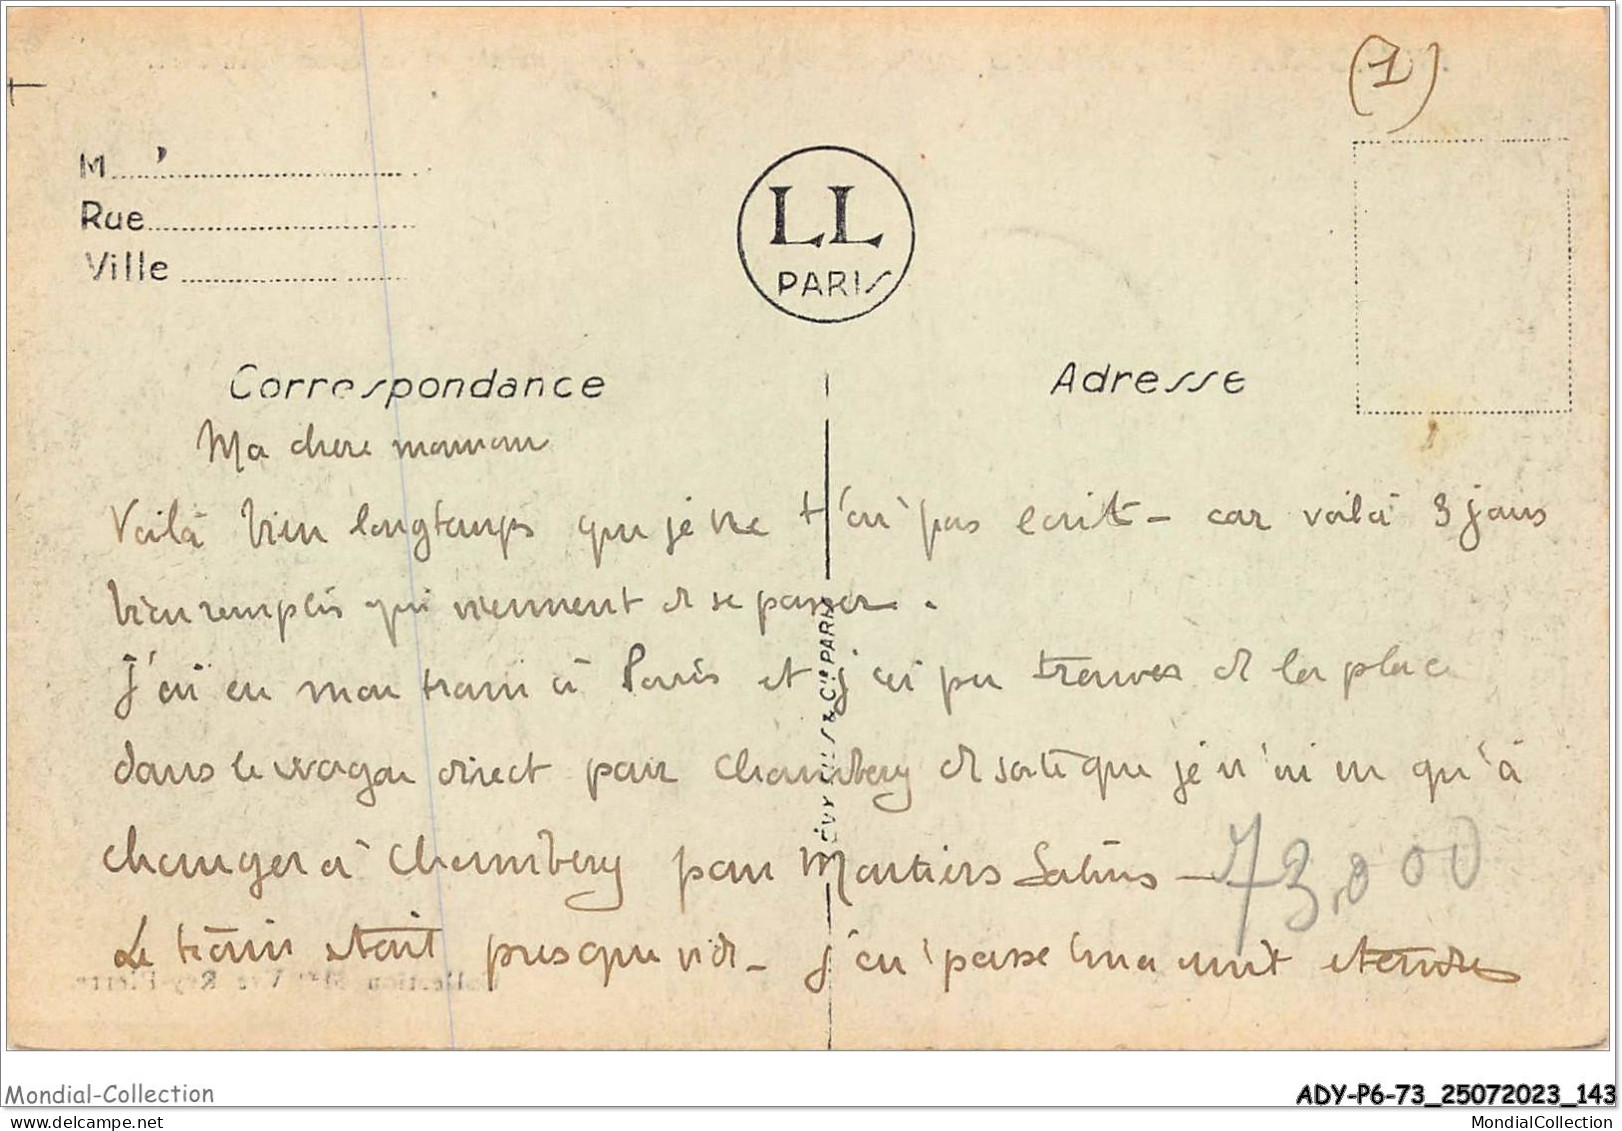 (1)
M
Rue
Ville
LL
PARIS
Correspondance
Adresse
Ma chere maman
Voilà bien longtemps que je ne t'ai pas ecrit - car voilà 3 jours
bien remplis qui viennent de se passer.
J'ai eu mon train à Paris et j'ai pu trouver de la place
dans le wagon direct pour Chambery de sorte que je n'ai eu qu'à
changer à Chambery pour Moutiers Salins -
73,000
Le train etait presque vide - j'ai passe ma nuit etendue
LÉVY FILS & Cie PARIS
Collection Mme Vve Rey-Pierre
Mondial-Collection
ADY-P6-73_25072023_143
Mondial-Collection.com
MondialCollection